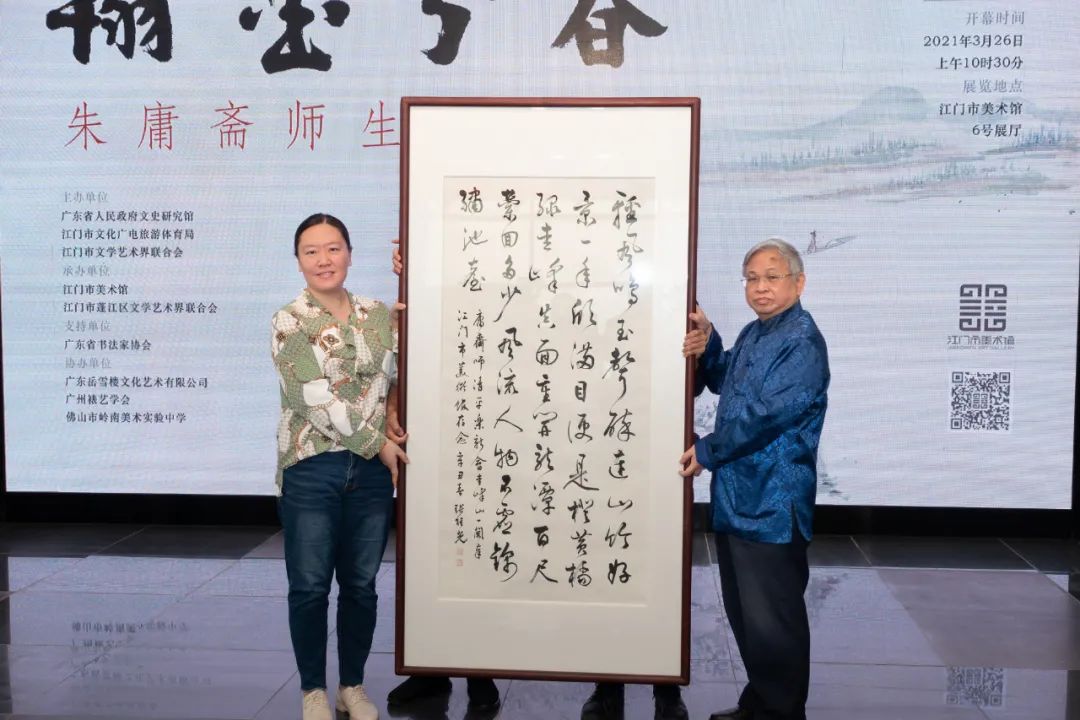 翰墨
春
朱庸斋师生
开幕时间
2021年3月26日
上午10时30分
展览地点
江门市美术馆
6号展厅
主办单位
广东省人民政府文史研究馆
江门市文化广电旅游体育局
江门市文学艺术界联合会
承办单位
江门市美术馆
江门市蓬江区文学艺术界联合会
支持单位
广东省书法家协会
协办单位
广东岳雪楼文化艺术有限公司
广州裱艺学会
佛山市岭南美术实验中学
輕風鳴玉聲碎連山竹好
景一年欣滿目便是橙黄橘
綠圭峰真面重開龍潭百尺
縈回多少風流人物不虚錦
繡池臺
庸齋師清平樂新會圭峰山一闋
江门市美術館存念 辛丑春 張桂光
江门市美術馆
JIANGMEN ART GALLERY